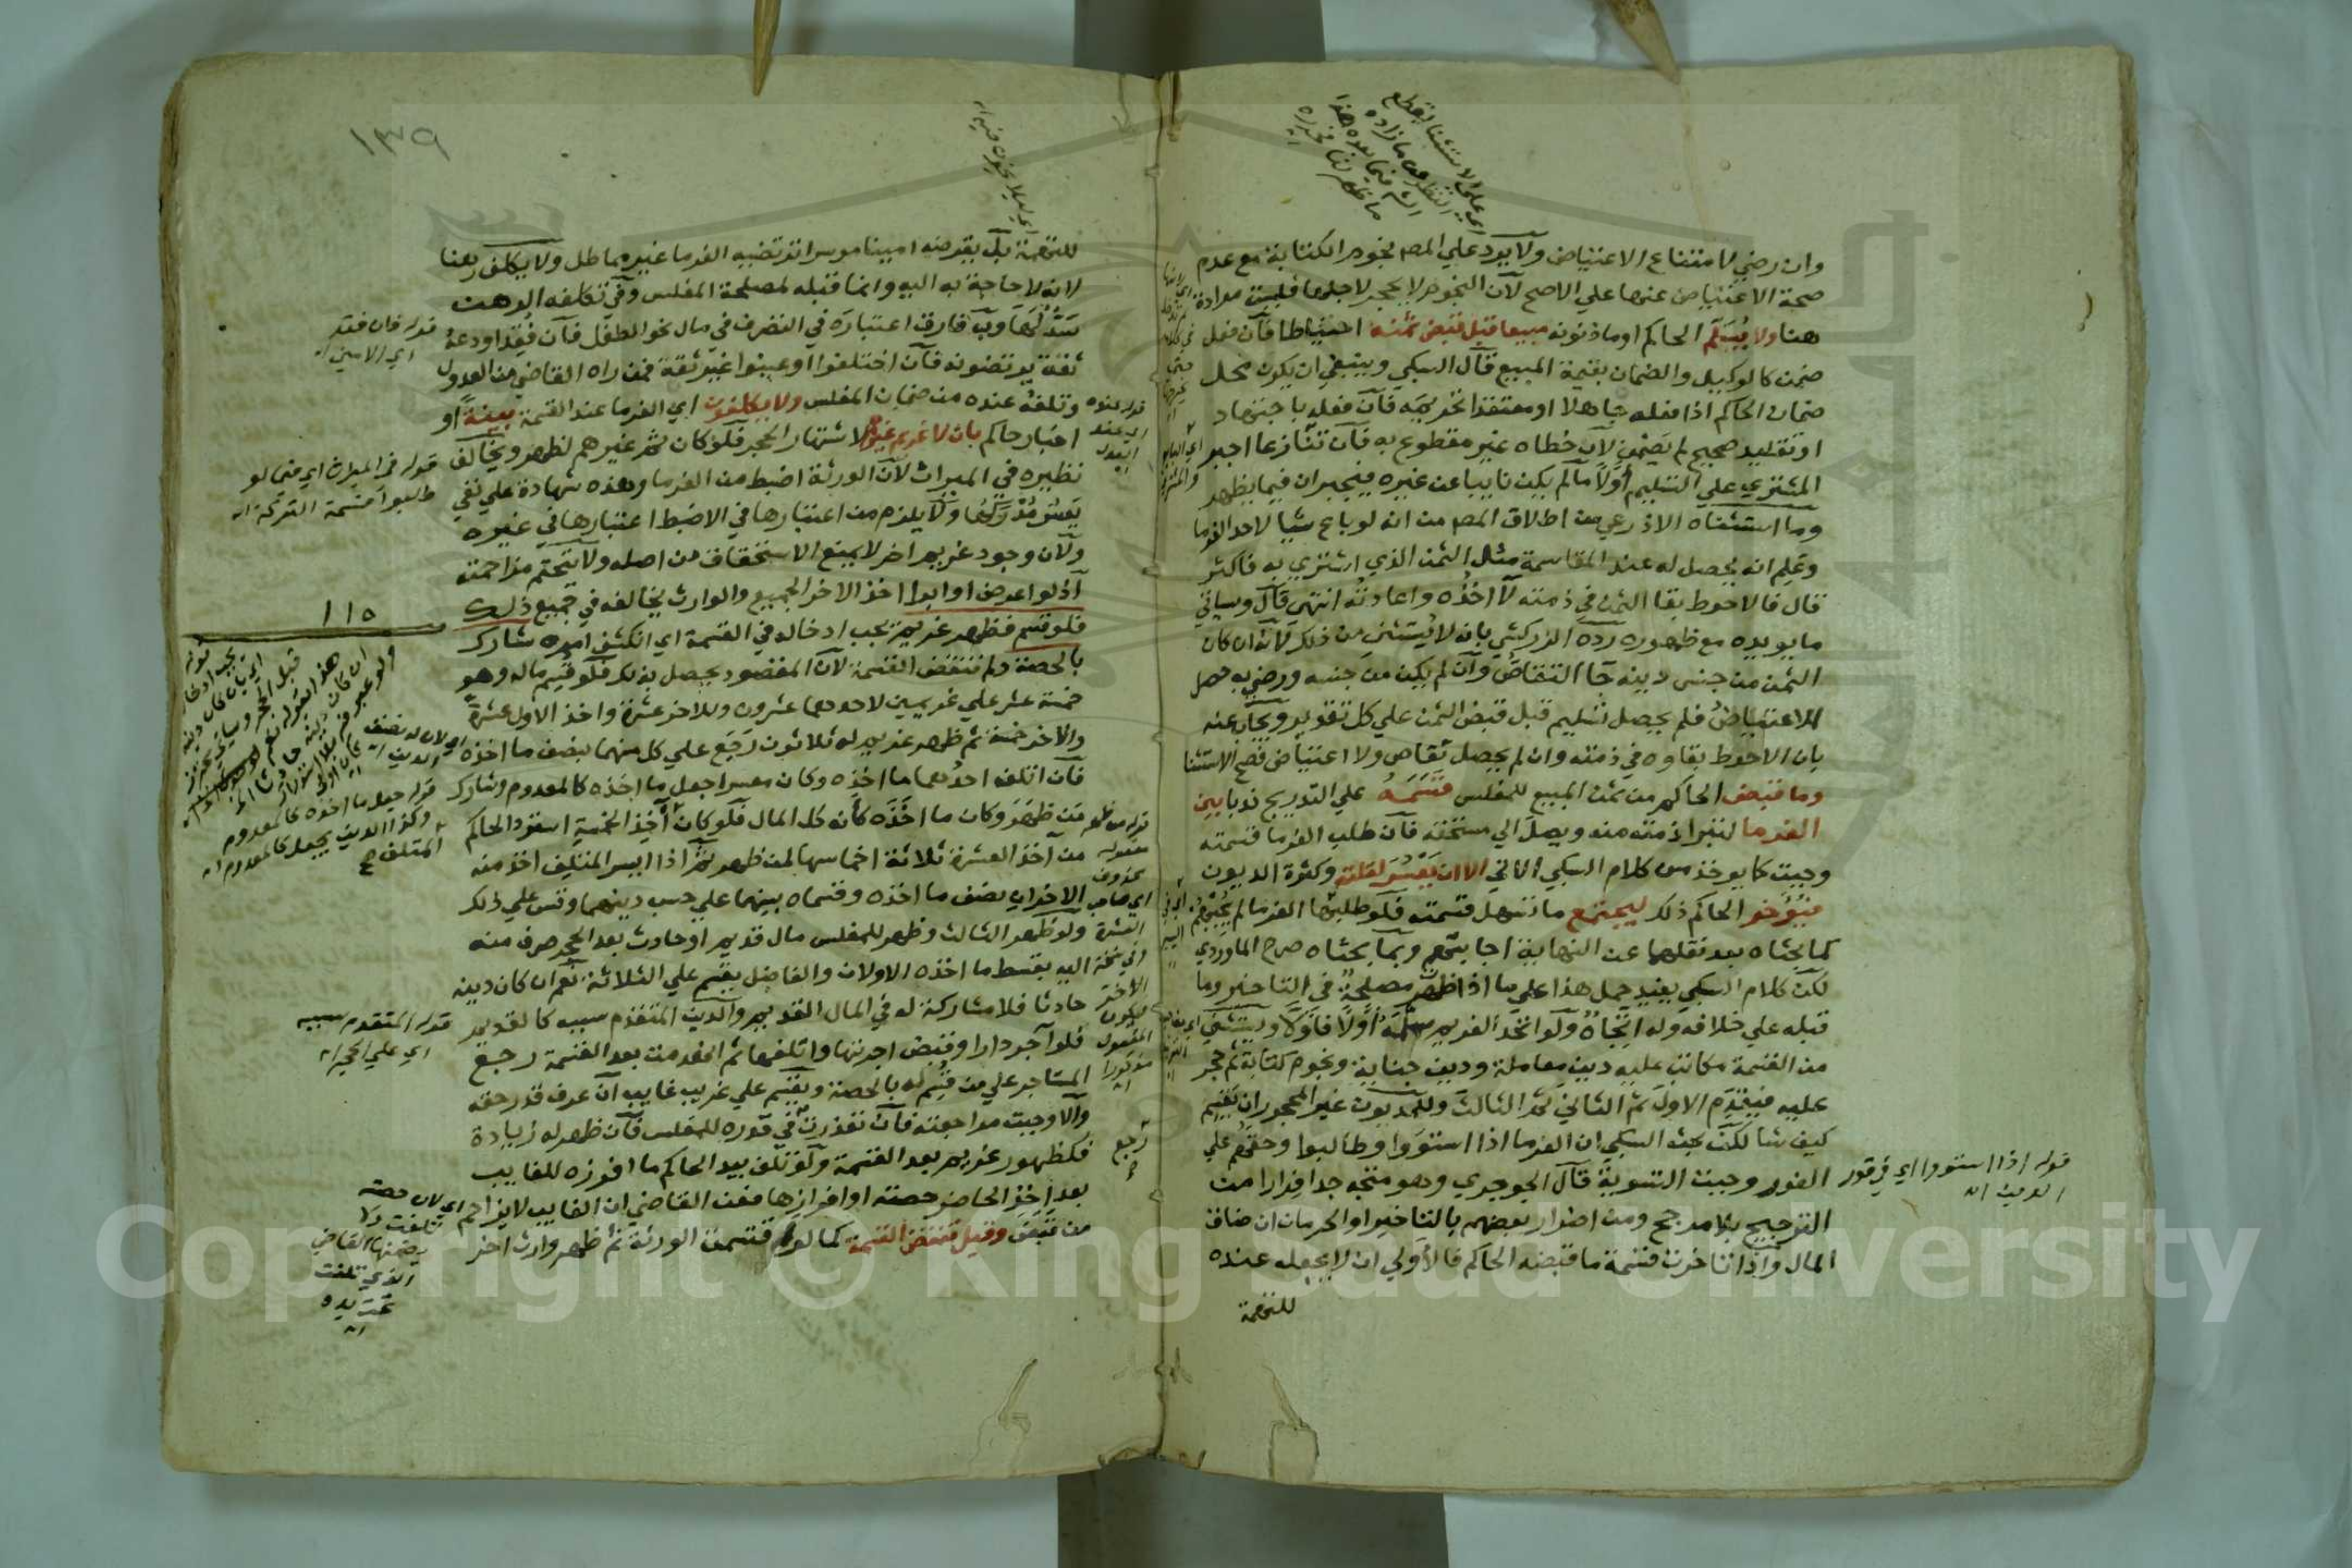 وان رضي لامتناع الاعتياض ولا يرد علي المص نجوم الكتابة مع عدم
صحة الاعتياض عنها علي الاصح لان النجوم لا يحجر لاجلها فليست مرادة
هنا ولا يُسَلّم الحاكم او ماذونه مبيعا قبل قبض ثمنه احتياطا فان فعل
ضمن كالوكيل والضمان بقيمة المبيع قال السبكي وينبغي ان يكون محل
ضمان الحاكم اذا فعله جاهلا او معتقدا تحريمه فان فعله باجتهاد
او تقليد صحيح لم يضمن لان خطاه غير مقطوع به فان تنازعا اجبر
المشتري علي التسليم اوّلا ما لم يكن نايبا عن غيره فيجبران فيما يظهر
وما استثناه الاذرعي من اطلاق المص من انه لو باع شيا لاحد الغرما
وعلم انه يحصل له عند المقاسمة مثل الثمن الذي اشتري به فاكثر
قال فالاحوط بقا الثمن في ذمته لا اخذه واعادته انتهى قال وسياتي
ما يويده مع ظهوره رده الزركشي بانه لا يستثني من ذلك لانه ان كان
الثمن من جنس دينه جا التقاص وان لم يكن من جنسه ورضي به حصل
الاعتياض فلم يحصل تسليم قبل قبض الثمن علي كل تقدير ويجاب عنه
بان الاحوط بقاوه في ذمته وان لم يحصل تقاص ولا اعتياض فصح الاستثنا
وما قبض الحاكم من ثمن المبيع للمفلس قسمه علي التدريج ندبا بين
الغرما لتبرا ذمته منه ويصل الي مستحقه فان طلب الغرما قسمته
وجبت كما يوخذ من كلام السبكي الاتي الا ان يعسر لقلته وكثرة الديون
فيؤخر الحاكم ذلك ليجتمع ما تسهل قسمته فلو طلبها الغرما لم يجبهم
كما بحثاه بعد نقلهما عن النهاية اجابتهم وبما بحثاه صرح الماوردي
لكن كلام السبكي يفيد حمل هذا علي ما اذا ظهرت مصلحة في التاخير وما
قبله علي خلافه وله اتجاه ولو اتحد الغريم سلمه اولا فاولا ويستثني
من القسمة مكاتب عليه دين معاملة ودين جناية ونجوم كتابة ثم حجر
عليه فيقدم الاول ثم الثاني ثم الثالث وللمديون غير المحجور ان يقسم
كيف شا لكن بحث السبكي ان الغرما اذا استووا وطالبوا وحقهم علي
الفور وجبت التسوية قال الجوجري وهو متجه جدا فرارا من
الترجيح بلا مرجح ومن اضرار بعضهم بالتاخير او الحرمان ان ضاق
المال واذا تاخرت قسمة ما قبضه الحاكم فالاولي ان لا يجعله عنده
للتهمة
اي علي الاستثنا بقطع
النظر عن ما زاده
الش فيما بعده هذا
ما ظهر لنا فحرره
قوله اذا استووا اي في قدر
الدين اه
١٣٩
للتهمة بل يقرضه امينا موسرا ترتضيه الغرما غير مماطل ولا يكلف رهنا
لانه لا حاجة به اليه وانما قبله لمصلحة المفلس وفي تكليفه الرهن
سدٌّ لها وبه فارق اعتباره في التصرف في مال نحو الطفل فان فقد اودعه
ثقة يرتضونه فان اختلفوا او عينوا غير ثقة فمن راه القاضي من العدول
وتلفه عنده من ضمان المفلس ولا يكلفون اي الغرما عند القسمة بينة او
اخبار حاكم بان لا غريم غيرهم لاشتهار الحجر فلو كان ثم غيرهم لظهر ويخالف
نظيره في الميراث لان الورثة اضبط من الغرما وهذه شهادة علي نفي
يعسر مدركها ولا يلزم من اعتبارها في الاضبط اعتبارها في غيره
ولان وجود غريم اخر لا يمنع الاستحقاق من اصله ولا تتحتم مزاحمته
اذ لو اعرض او ابرا اخذ الاخر الجميع والوارث يخالفه في جميع ذلك
فلو قسم فظهر غريم يجب ادخاله في القسمة اي انكشف امره شارك
بالحصة ولم تنقض القسمة لان المقصود يحصل بذلك فلو قسم ماله وهو
خمسة عشر علي غريمين لاحدهما عشرون وللاخر عشرة واخذ الاول عشرة
والاخر خمسة ثم ظهر غريم له ثلاثون رجع علي كل منهما بنصف ما اخذه
فان اتلف احدهما ما اخذه وكان معسرا جعل ما اخذه كالمعدوم وشارك
من ظهر وكان ما اخذه كانه كل المال فلو كان اخذ الخمسة استرد الحاكم
من اخذ العشرة ثلاثة اخماسها لمن ظهر ثم اذا ايسر المتلف اخذ منه
الاخران نصف ما اخذه وقسماه بينهما علي حسب دينهما وقس علي ذلك
ولو ظهر الثالث وظهر للمفلس مال قديم او حادث بعد الحجر صرف منه
اليه بقسط ما اخذه الاولان والفاضل يقسم علي الثلاثة نعم ان كان دينه
حادثا فلا مشاركة له في المال القديم والدين المتقدم سببه كالقديم
فلو اجر دارا وقبض اجرتها واتلفها ثم انهدمت بعد القسمة رجع
المستاجر علي من قسم له بالحصة ويقسم علي غريب غايب ان عرف قدر حقه
والا وجبت مراجعته فان تعذرت في قدره للمفلس فان ظهر له زيادة
فكظهور غريم بعد القسمة ولو تلف بيد الحاكم ما افرزه للغايب
بعد اخذ الحاضر حصته او افرازها فعن القاضي ان الغايب لا يزاحم
من قبض وقيل تنقض القسمة كما لو قسمت الورثة ثم ظهر وارث اخر
قوله فان فقد
اي الامين اه
قوله في الميراث اي متي لو
طلبوا قسمة التركة اه
١١٥
قوله جعل ما اخذه كالمعدوم
وكذا الدين يجعل كالمعدوم اه
قوله المتقدم سببه
اي علي الحجر اه
اي لان حصته
تلفت
يضمنها القاضي
الذي تلفت
تحت يده
اه